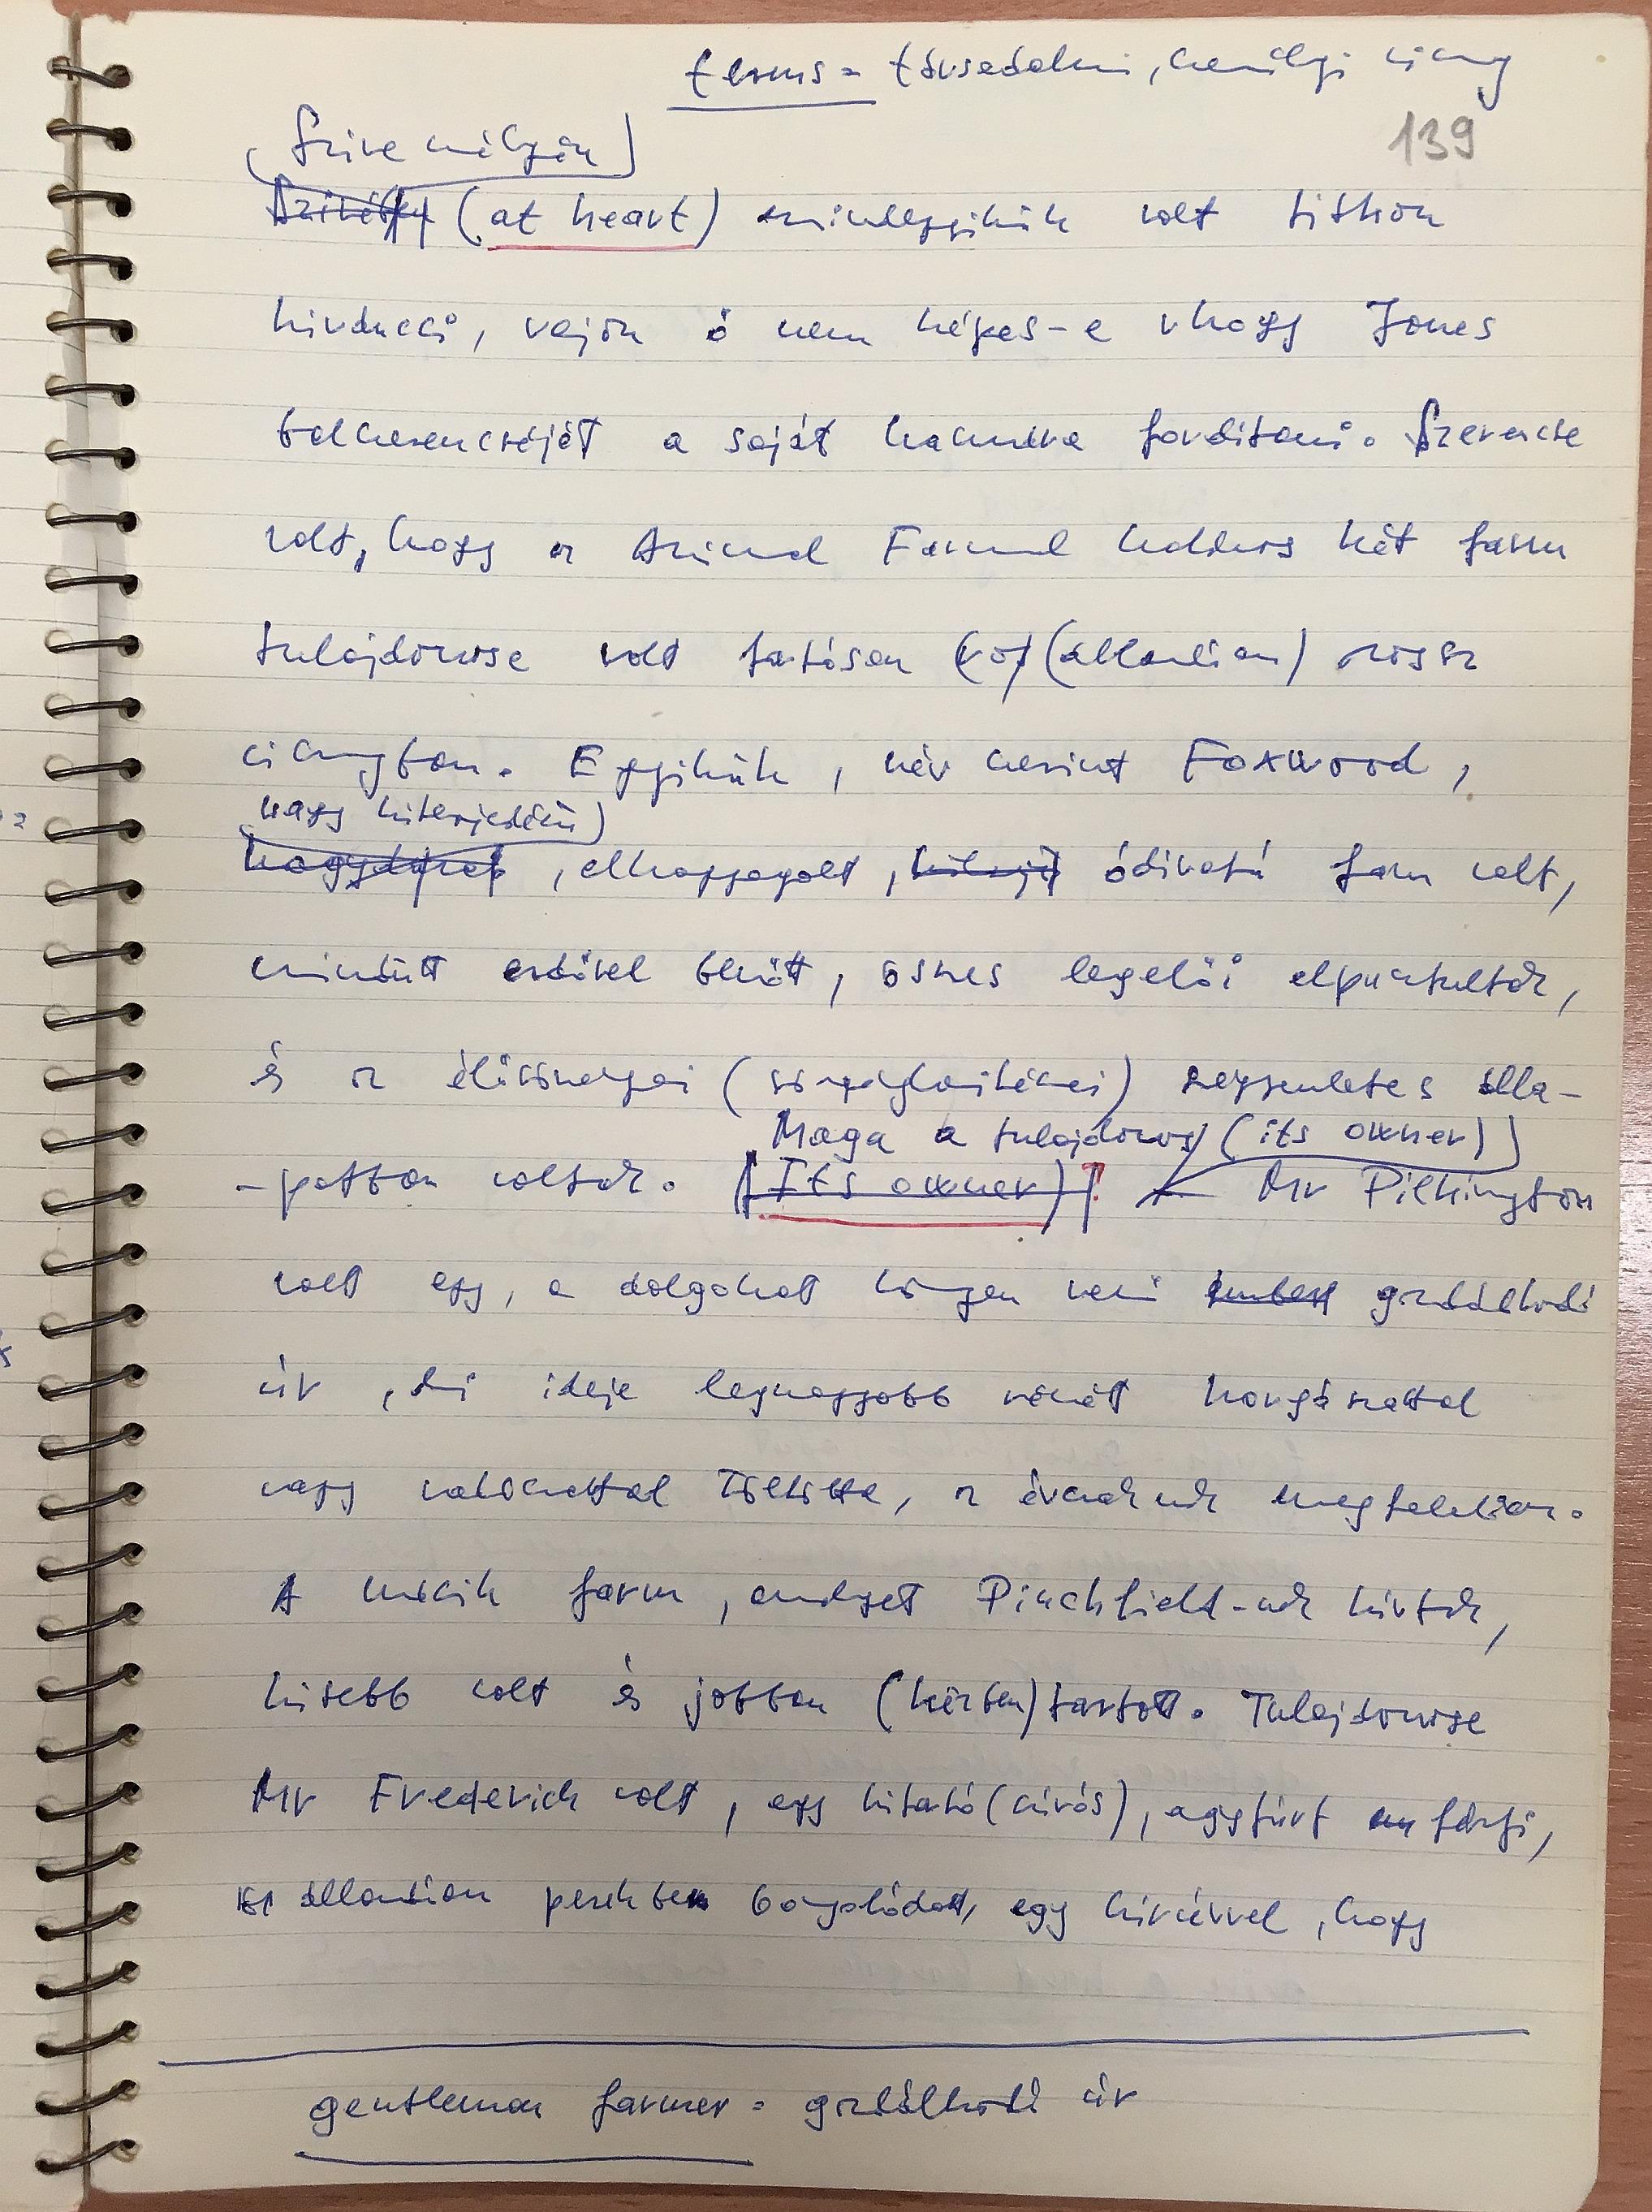 terms = társadalmi, személyi viszony
139
Szive mélyén
(at heart) mindegyikük volt titkon
kiváncsi, vajon ő nem képes-e vhogy Jones
balszerencséjét a saját hasznára forditani. Szerencse
volt, hogy az Animal Farmmal határos két farm
tulajdonosa volt tartósan (állandóan) rossz
viszonyban. Egyikük, név szerint Foxwood,
nagy kiterjedésű
, elhanyagolt, ódivatú farm volt,
mindütt erdővel benőtt, összes legelői elpusztultak,
és az élősövényei (sövénykerítései) szégyenletes álla-
Maga a tulajdonos (its owner)
-potban voltak. (Its owner) Mr Pilkington
volt egy, a dolgokat könnyen vevő gazdálkodó
úr, ki ideje legnagyobb részét horgászattal
vagy vadászattal töltötte, az évszaknak megfelelően.
A másik farm, amelyet Pinchfield-nek hivtak,
kisebb volt és jobban (kézben) tartott. Tulajdonosa
Mr Frederick volt, egy kitartó (szívós), agyafúrt férfi,
ki állandóan perekbe bonyolódott, egy hírnévvel, hogy
gentleman farmer = gazdálkodó úr